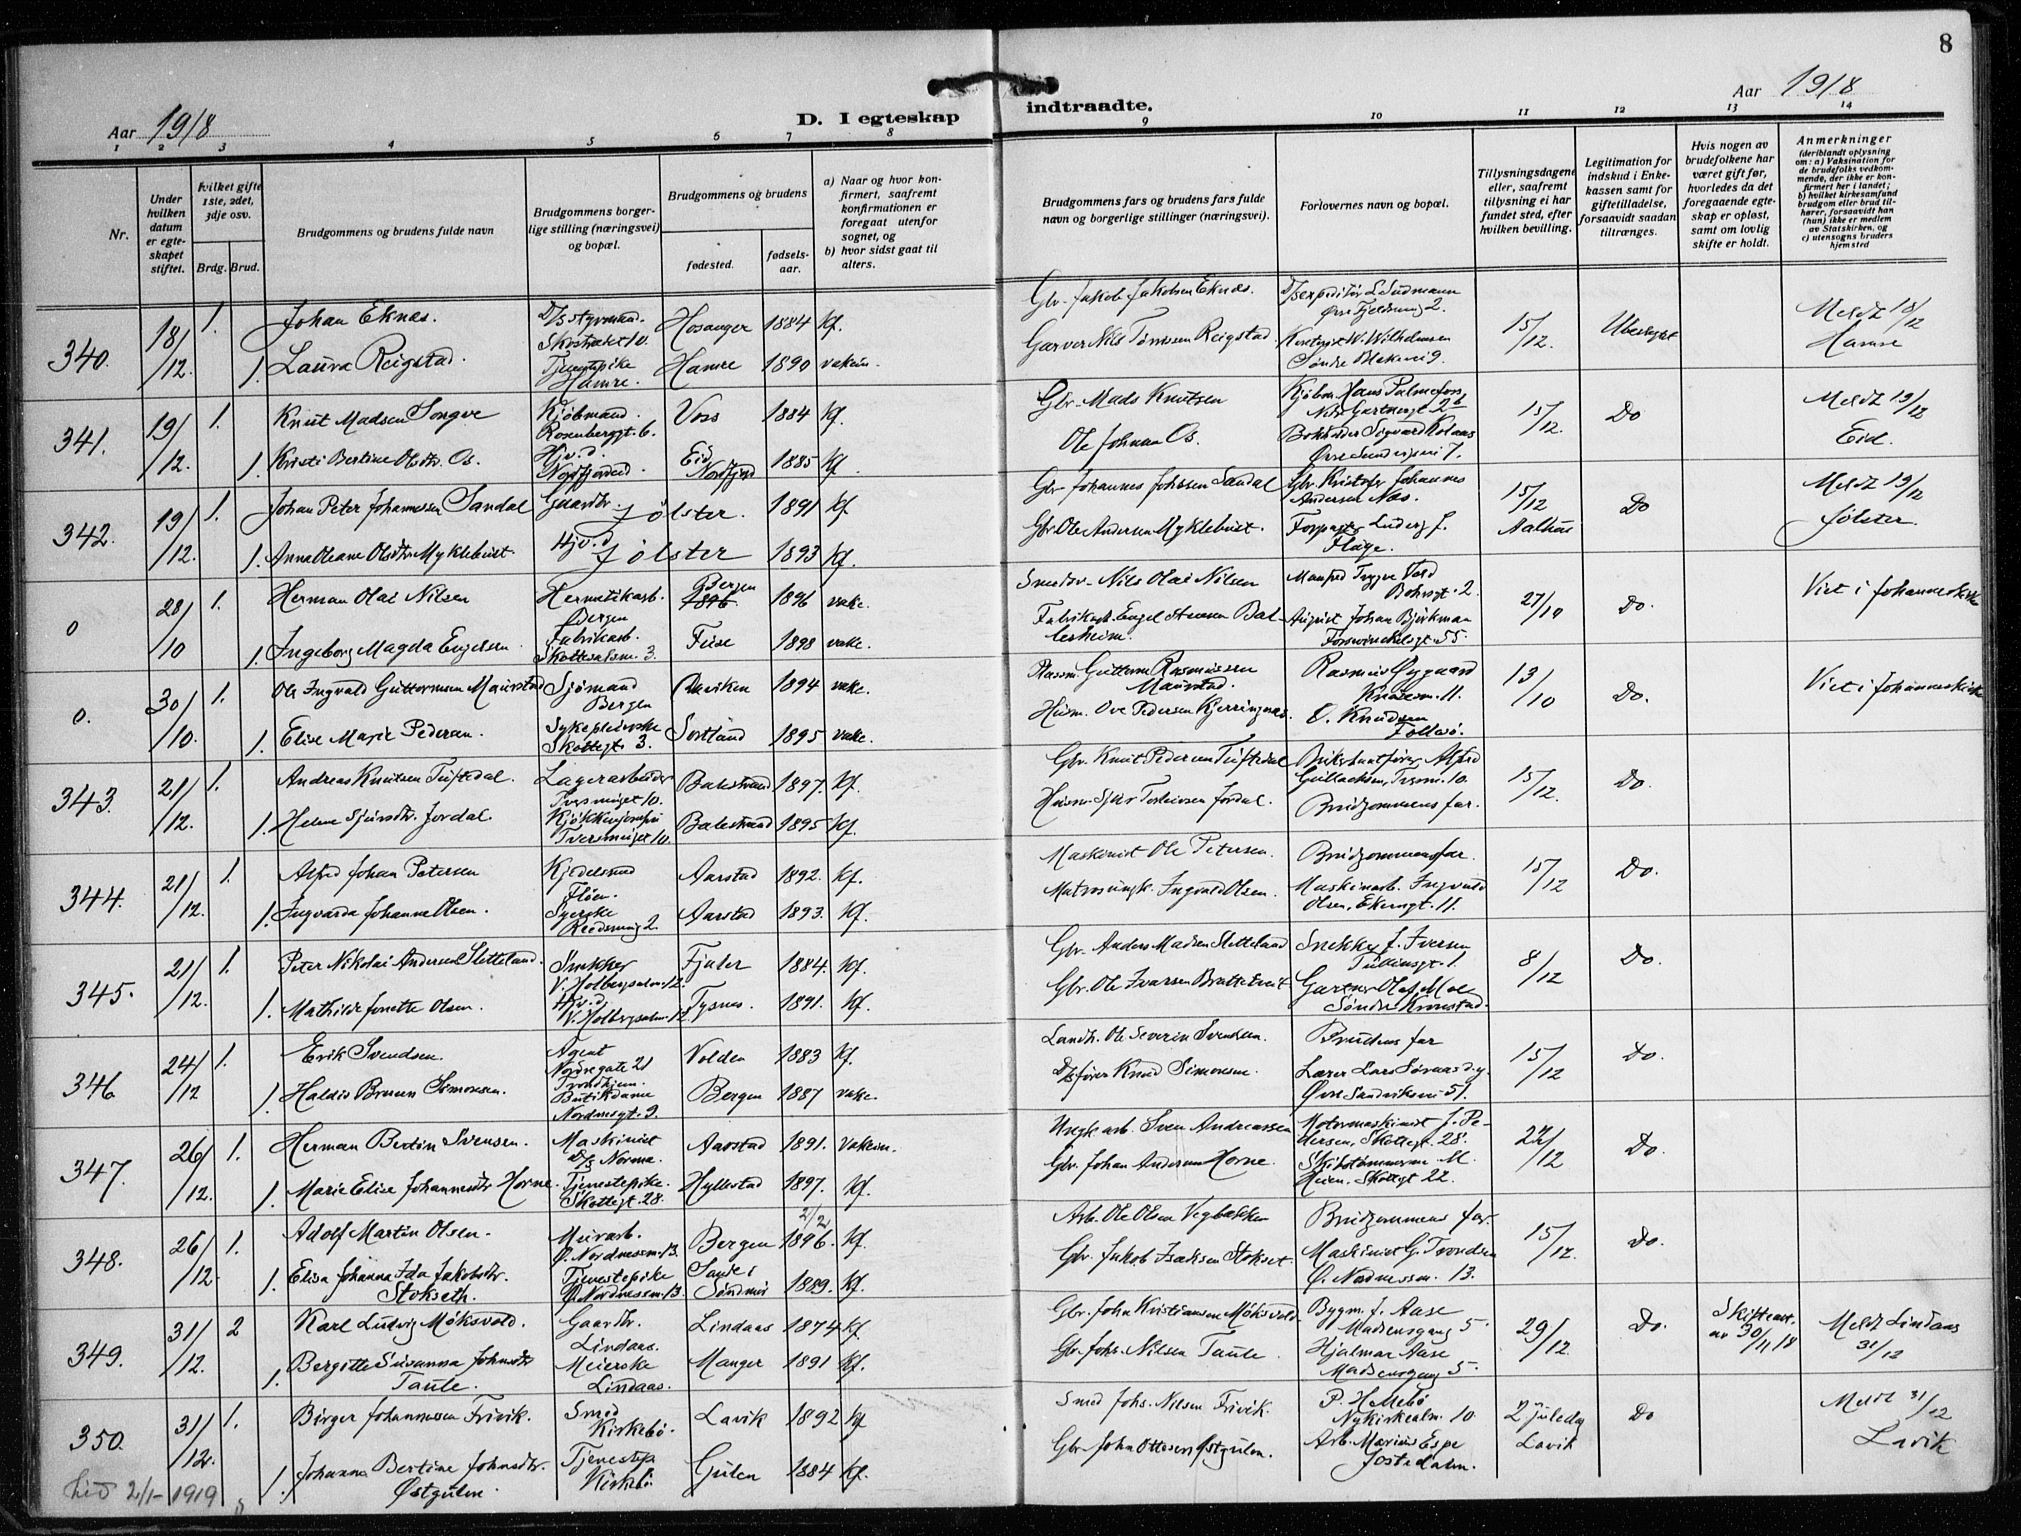 8
Aar 1918
D. I egteskap
indtraadte.
Aar 1918
1 2 3 4 5 6 7 8
9 10 11 12 13 14
Nr.
Under hvilken datum er egteskapet stiftet.
hvilket gifte 1ste, 2det, 3dje osv.
Brdg. Brud.
Brudgommens og brudens fulde navn
Brudgommens borgerlige stilling (næringsvei) og bopæl.
Brudgommens og brudens
fødested.
fødselsaar.
a) Naar og hvor konfirmert, saafremt konfirmationen er foregaat utenfor sognet, og
b) hvor sidst gaat til alters.
Brudgommens fars og brudens fars fulde navn og borgerlige stillinger (næringsvei).
Forlovernes navn og bopæl.
Tillysningsdagene eller, saafremt tillysning ei har fundet sted, efter hvilken bevilling.
Legitimation for indskud i Enkekassen samt for giftetilladelse, forsaavidt saadan tiltrænges.
Hvis nogen av brudefolkene har været gift før, hvorledes da det foregaaende egteskap er opløst, samt om lovlig skifte er holdt.
Anmerkninger
(deriblandt oplysning om: a) Vaksination for de brudefolks vedkommende, der ikke er konfirmert her i landet; b) hvilket kirkesamfund brudgom eller brud tilhører, forsaavidt han (hun) ikke er medlem av Statskirken, og c) utensogns bruders hjemsted
340. 18/12. 1. Johan Eknes. D/S styrmand. Hosanger 1884 Kf.
Gbr. Jakob Jakobsen Eknes. 15/12. Ubeskyt Meldt 18/12 Hamre
1. Laura Reigstad. Tjenestepike Hamre. Hamre 1890 vaksin.
Garver Nils Tønnesen Reigstad.
341. 19/12. 1. Knut Madsen Songve Kjøbmand. Rosenbergt. 6. Voss 1884 Kf.
Gbr. Mads Knutsen 15/12. Do Meldt 19/12 Eid.
1. Kristi Bertine Olsdtr. Os. Hjv. d. Nordfjordeid. Eid Nordfjord 1885 Kf.
Ole Johnsen Os.
342. 19/12. 1. Johan Peter Johannessen Sandal Gaardbr. Jølster. 1891 Kf.
Gbr. Johannes Johnsen Sandal Gbr. Kristofer Johannes Andersen Næs. 15/12 Aalhus Do Meldt 19/12 Jølster.
1. Anna Oleane Olsdtr. Myklebust. Hjv. d. Jølster 1893 Kf.
Gbr. Ole Andersen Myklebust.
0 28/10 1. Herman Olai Nilsen Hermetikarb. Bergen Bergen 1896 vaks.
Nils Olai Nilsen 27/10 Do. Viet i Johanneskirke
1. Ingeborg Magda Engelsen. Fabrikarb. 3. Fuse 1898 vaks.
August Johan Björkman
0. 30/10. 1. Ole Ingvald Guttormsen Maurstad Sjömand Bergen Daviken 1894 vaks.
Guttorm Rasmussen Maurstad. Rasmus Øygaard 13/10 Do. Viet i Johanneskirke
1. Elise Marie Pedersen. Sykepleierske Skottegt. 3. Sortland 1895 vaks.
Husm. Ove Pedersen Kjerringnes. O. Knudsen
343. 21/12. 1. Andreas Knutsen Tuftedal. Lagerarbeider Balestrand 1897. Kf.
Gbr. Knut Pedersen Tuftedal 15/12. Do.
1. Helene Sjursdtr. Jordal. Balestrand 1895 Kf.
Husm. Sjur Torleivsen Jordal. Brudgommens far.
344. 21/12. 1. Alfred Johan Petersen Kjedelsmed Fløen. Aarstad 1892. Kf.
Maskinist Ole Petersen. Brudgommens far. 15/12 Do.
1. Ingvarda Johanne Olsen. Syerske Aarstad 1893. Kf.
Ingvald Olsen. Maskinarb. Ingvald Olsen, 11.
345. 21/12. 1. Peter Nikolai Andersen Sletteland. Snekker V. Holbergsalm. 12. Fjaler 1884. Kf.
Gbr. Anders Madsen Sletteland Snekker J. Iversen Tullinsgt. 1. 8/12 Do.
1. Mathilde Jonette Olsen. Hjv. d. V. Holbergsalm. 12 Tysnes. 1891. Kf.
Gbr. Ole Ivarsen Brattetveit Gartner Olaf Moe Søndre Kronstad.
346 24/12 1. Erik Svendsen. Agent Nordregate 21 Trondhjem. Volden 1883 Kf.
Landh. Ole Severin Svendsen. Brudens far 15/12 Do.
1. Haldis Bruun Simonsen. Butikdame Nordnesgt. 9. Bergen 1887 vaks.
D/S fører Knud Simonsen. Øvre Sandviksvei 51.
347. 26/12. 1. Herman Bertin Svensen. Maskinist D/S Norma. Aarstad 1891. Vaksin.
Sven Andreassen Motormaskinist J. Pedersen, Skottegt. 28. 22/12 Do.
1. Marie Elise Johannesdtr Horne. Tjenestepike. Skottegt. 28. Hyllestad 1897. Kf.
Gbr. Johan Andersen Horne. Skottegt 22.
348. 26/12. 1. Adolf Martin Olsen. Murarb. Ø. Nordnessm. 13. Bergen 2/2 1896. Kf.
Arb. Ole Olsen Vegbakken Brudgommens far. 15/12. Do.
1. Elisa Johanna Ida Jakobsdtr. Stokseth. Tjenestepike Ø. Nordnessm. 13. Sande i Søndmør 1889. Kf.
Gbr. Jakob Isaksen Stokset. Maskinist G. Trondsen Ø. Nordnessm. 13.
349. 31/12. 2 Karl Ludvig Møksvold. Gaardbr. Lindaas. Lindaas 1874 Kf.
Gbr. John Kristiansen Møksvold. Bygm. J. Aase Madsensgang 5. 29/12. Do. Skifteatt. av 30/11 18 Meldt Lindaas 31/12
1. Bergitte Susanna Johnsdtr Taule. Meierske Lindaas. Manger 1891 Kf.
Gbr. Johs. Nilsen Taule. Hjalmar Aase Madsensgang 5.
350. 31/12. 1. Birger Johannessen Frivik. Smed Kirkebø. Lavik 1892 Kf
Smed Johs. Nilsen Frivik. Nykirkealm. 10. 2 juledag Lavik Do Meldt 31/12 Lavik
1. Johanna Bertine Johnsdtr. Østgulen. Tjenestep. Kirkebø Gulen 1884 Kf.
Gbr. John Ottesen Østgulen. Arb. Marius Espe Jostedalm.
hid 2/1-1919